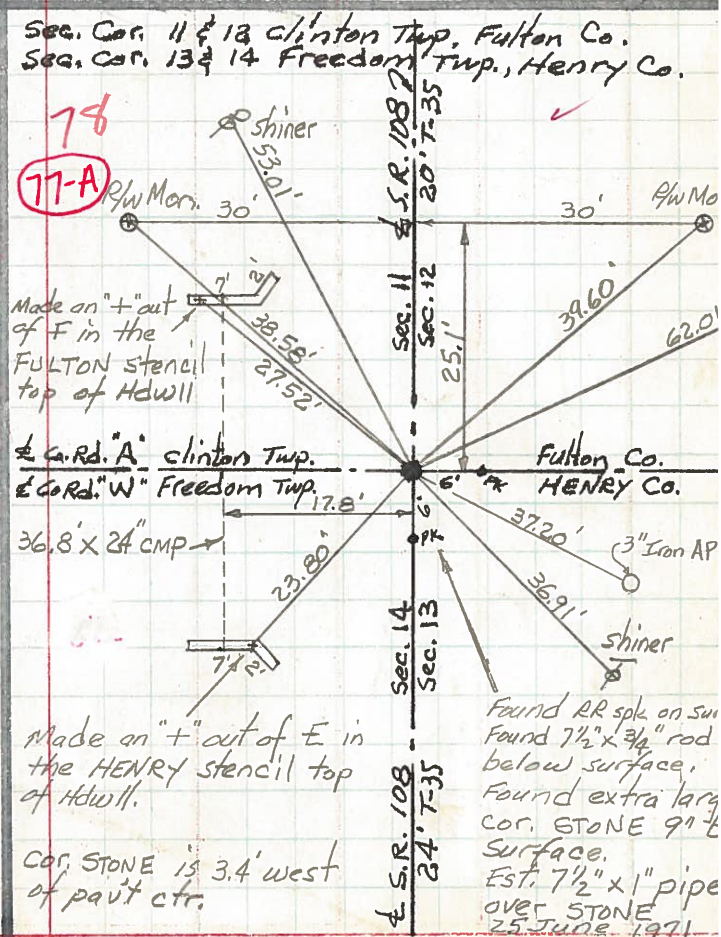 Sec. Cor. 11 & 12 Clinton Twp, Fulton Co.
Sec. cor. 13 & 14 Freedom Twp., Henry Co.
78
77-A
shiner
53.01'
℄ S.R. 108
20' T-35
R/W Mon.
30'
30'
R/W Mo
7'
2'
Made an "+" out
of F in the
FULTON stencil
top of Hdwll
38.58'
27.52'
Sec. 11
Sec. 12
25.1'
39.60'
62.0
℄ Co.Rd. "A" Clinton Twp.
Fulton Co.
℄ Co Rd. "W" Freedom Twp.
HENRY Co.
6'
PK
17.8'
6'
PK
36.8' X 24" CMP
23.80'
37.20'
3" Iron AP
36.91'
Sec. 14
Sec. 13
shiner
7'
2'
Made an "+" out of E in
the HENRY stencil top
of Hdwll.
Cor. STONE is 3.4' west
of pav't ctr.
℄ S.R. 108
24' T-35
Found RR spk on sur
Found 7½" x ¾" rod
below surface.
Found extra larg
cor. STONE 9"
Surface.
Est. 7½" x 1" pipe
over STONE
25 June 1971